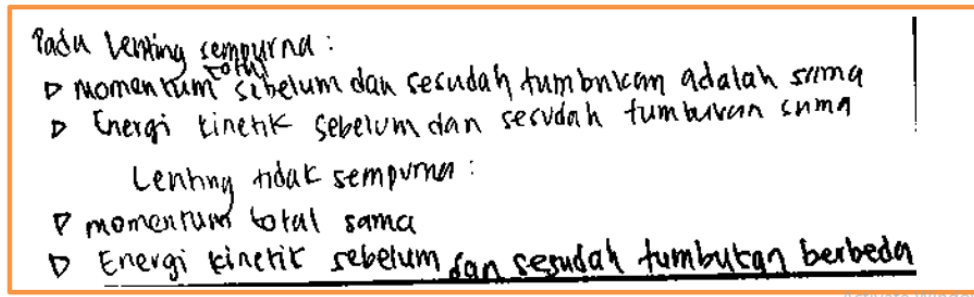 Pada lenting sempurna :
▷ momentum total sebelum dan sesudah tumbukan adalah sama
▷ Energi kinetik sebelum dan sesudah tumbukan sama
Lenting tidak sempurna :
▷ momentum total sama
▷ Energi kinetik sebelum dan sesudah tumbukan berbeda